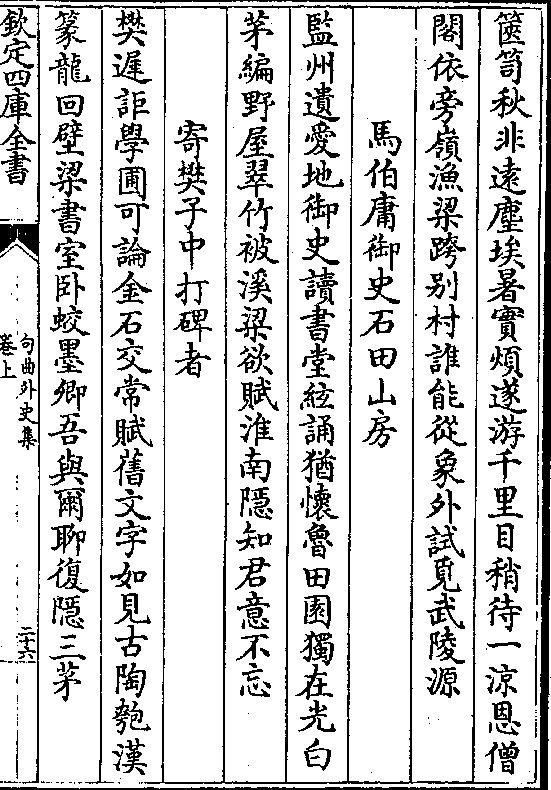 篋笥秋非遠塵埃暑實煩遂游千里目稍待一涼恩僧
閣依旁嶺漁梁跨别村誰能從象外試覓武陵源
馬伯庸御史石田山房
監州遺愛地御史讀書堂絃誦猶懐魯田園獨在光白
茅編野屋翠竹被溪梁欲賦淮南隱知君意不忘
寄樊子中打碑者
樊遲詎學圃可論金石交常賦舊文字如見古陶匏漢
篆龍回壁梁書室卧蛟墨卿吾與爾聊復隱三茅
欽定四庫全書
句曲外史集
卷上
二十六